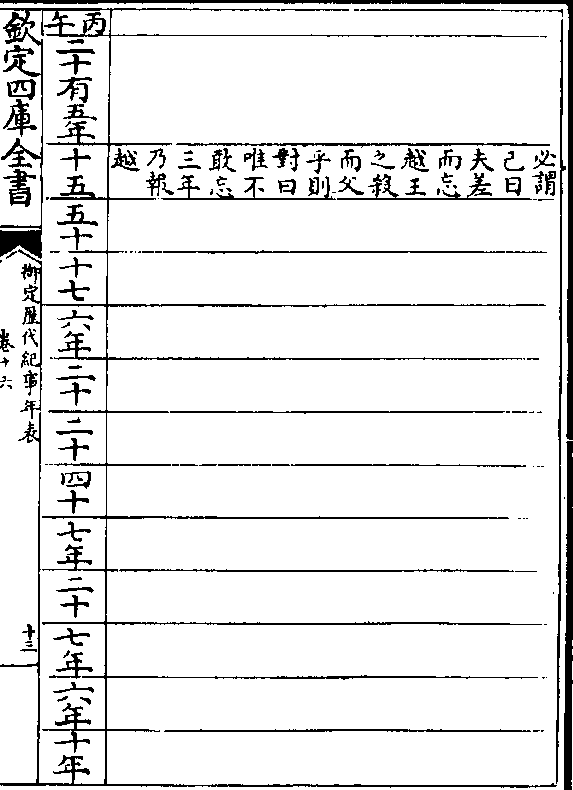 必謂
己曰
夫差
而忘
越王
之殺
而父
乎則
對曰
唯不
敢忘
三年
乃報
越
丙午
二十有五年
十五
五十
十七
六年
二十
二十
四十
七年
二十
七年
六年
十年
欽定四庫全書
御定歷代紀事年表
卷十六
十三